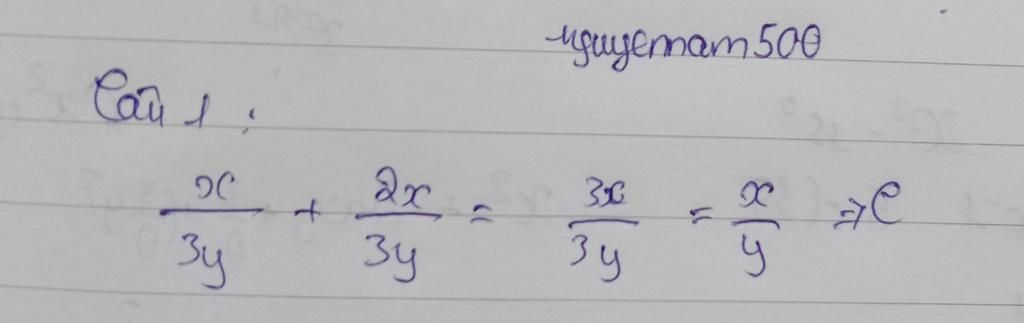 nguyetnam500
Câu 1 :
x/3y + 2x/3y = 3x/3y = x/y ⇒ C